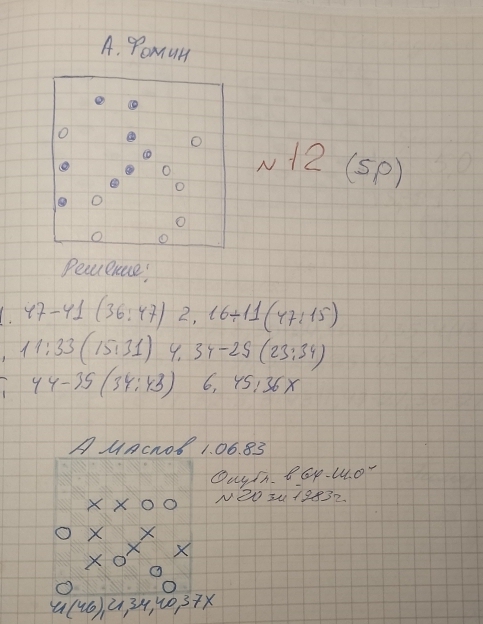 А. Фомин
№12 (5р)
Решение:
1. 47-41 (36:47) 2. 16-11 (47:15)
11:33 (15:31) 4. 34-29 (23:34)
44-39 (34:43) 6. 45:36X
А Маслов 1.06.83
Опубл. в "64-Ш.О"
№20 за 1983г.
41(46), 21, 34, 40, 37X